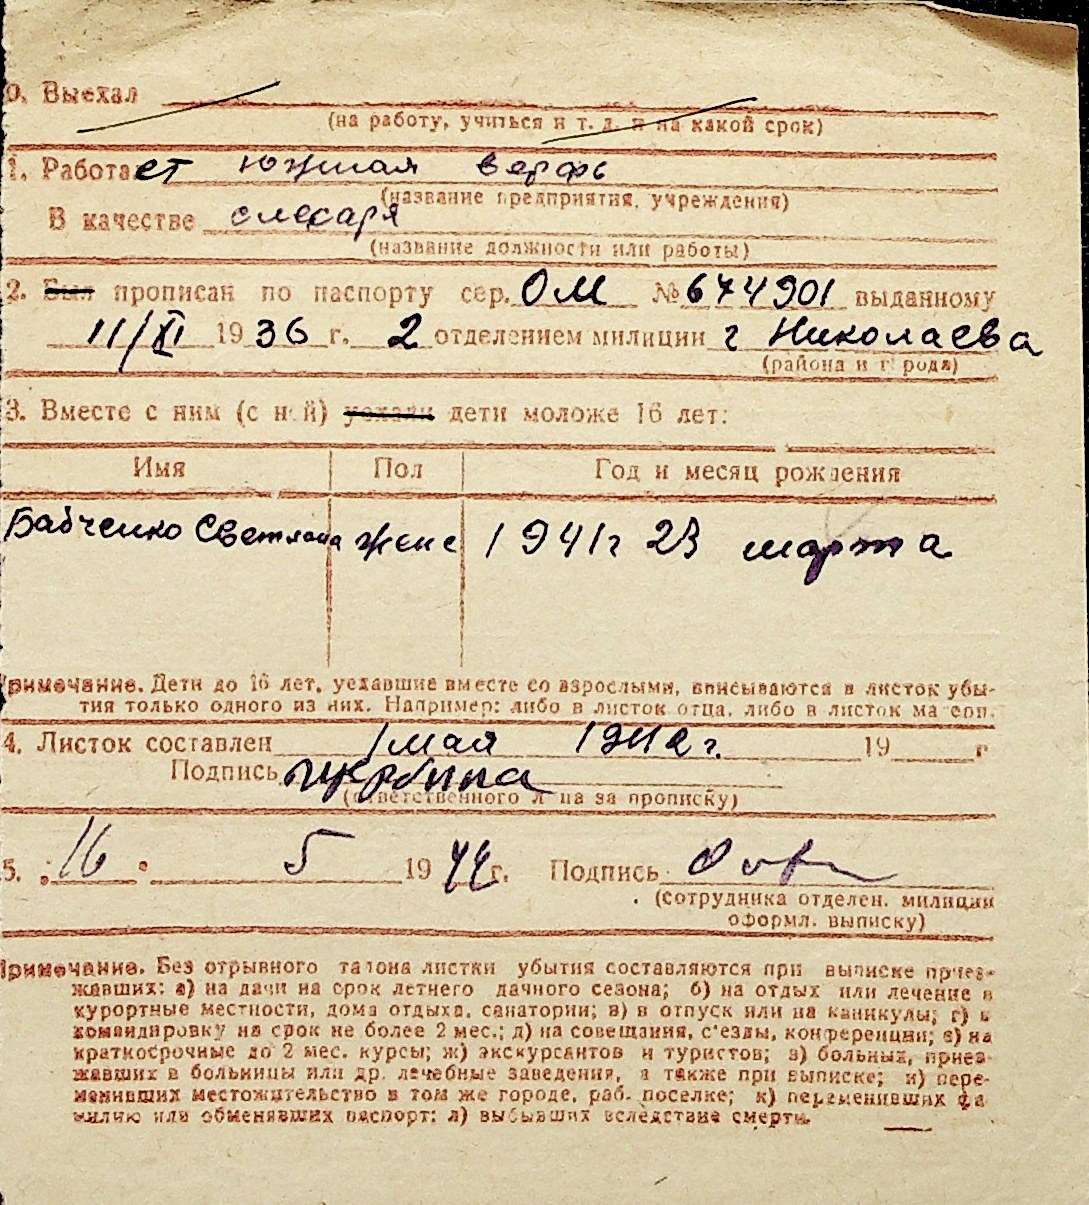 0. Выехал
(на работу, учиться и т. д. и на какой срок)
1. Работает Южная верфь
(название предприятия, учреждения)
В качестве слесаря
(название должности или работы)
2. Был прописан по паспорту сер. ОМ № 674901 выданному
11/XI 1936 г. 2 отделением милиции г Николаева
(района и г рода)
3. Вместе с ним (с н й) уехали дети моложе 16 лет:
Имя Пол Год и месяц рождения
Бабченко Светлана женс 1941г 23 марта
римечание. Дети до 16 лет, уехавшие вместе со взрослыми, вписываются в листок убы-
тия только одного из них. Например: либо в листок отца, либо в листок ма ери.
4. Листок составлен 1 мая 1942 г. 19 г
Подпись
(ответственного л ца за прописку)
5. 16 5 1944 г. Подпись
(сотрудника отделен. милиции
оформл. выписку)
Примечание. Без отрывного талона листки убытия составляются при выписке приез-
жавших: а) на дачи на срок летнего дачного сезона; б) на отдых или лечение в
курортные местности, дома отдыха, санатории; в) в отпуск или на каникулы; г) в
командировку на срок не более 2 мес.; д) на совещания, с'езды, конференции; е) на
краткосрочные до 2 мес. курсы; ж) экскурсантов и туристов; з) больных, приез-
жавших в больницы или др. лечебные заведения, а также при выписке; и) пере-
менивших местожительство в том же городе, раб. поселке; к) переменивших фа
милию или обменявших паспорт; л) выбывших вследствие смерти.